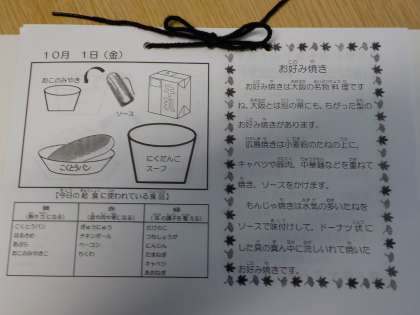 10月 1日(金)
おこのみやき
ソース
こくとうパン
にくだんご
スープ
【今日の給食に使われている食品】
こくとうパン
はるさめ
あぶら
おこのみやきこ
ぎゅうにゅう
チキンボール
ベーコン
ちくわ
たけのこ
にんじん
たまねぎ
キャベツ
あおねぎ
お好み焼き
お好み焼きは大阪の名物料理です
ね。大阪とは別の県にも、ちがった型の
お好み焼きがあります。
広島焼きは小麦粉のたねの上に、
キャベツや豚肉、中華麺などを重ねて
焼き、ソースをかけます。
もんじゃ焼きは水気の多いたねを
ソースで味付けして、ドーナツ状に
した具の真ん中に流しいれて焼いた
お好み焼きです。